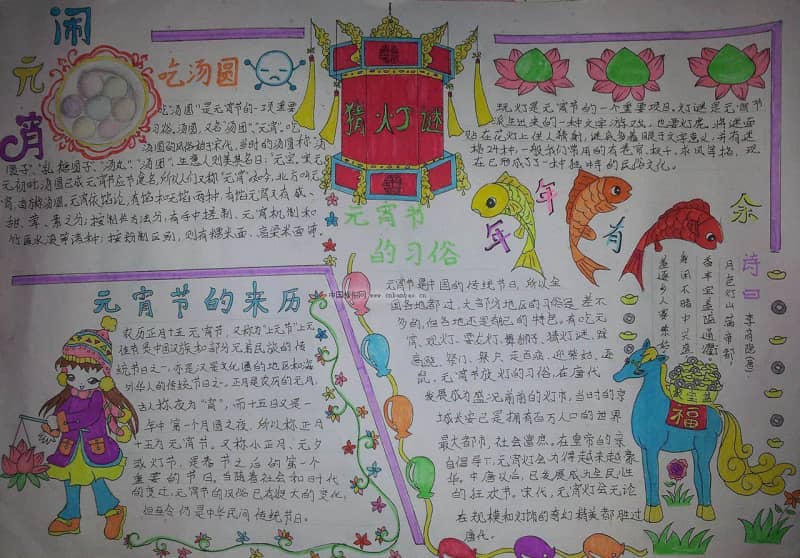 闹
元
宵
吃汤圆
吃汤圆"是元宵节的一项重要
习俗。汤圆,又名"汤团""元宵"。吃
汤圆的风俗始于宋代。当时的汤圆称"浮
圆子",
甜、荤、素之分;按制作方法分,有手中搓制、元宵机制和
竹匾水滚等诸种;按粉制区别,则有糯米面、高粱米面等。
猜灯谜
玩灯是元宵节的一个重要项目。灯谜是元宵节
派生出来的一种文字游戏,也要灯虎。将谜面
贴在花灯上供人猜射,谜底多着眼于文字意义,并有谜
格24种,一般我们常用的有卷帘、秋千、求凤等格,现
在已形成了了一种独特的民俗文化。
年
年
有
余
元宵节
的习俗
元宵节是中国的传统节日,所以全
国各地都过,大部分地区的习俗是差不
多的,但各地还是有自己的特色。有吃元
宵、观灯、耍龙灯、舞狮子、猜灯谜、踩
高跷、祭门、祭户、走百病、迎紫姑、逐
鼠。元宵节放灯的习俗,在唐代
发展成为盛况前所的灯市,当时的京
城长安已是拥有百万人口的世界
最大都市,社会富庶。在皇帝的亲
自倡导下,元宵灯会办得越来越豪
华。中唐以后,已发展成为全民性
的狂欢节。宋代,元宵灯会无论
在规模和灯饰的奇幻精美都胜过
唐代。
诗曰
李商隐(唐)
月色灯山满帝都,
香车宝盖隘通衢。
身闲不睹中兴盛,
羞逐乡人赛紫姑。
聚宝盆
福
元宵节的来历
农历正月十五元宵节,又称为"上元节"上元
佳节是中国汉族和部分兄弟民族的传
统节日之一,亦是汉字文化圈的地区和海
外华人的传统节日之一。正月是农历的元月,
古人称夜为"宵",而十五日又是一
年中第一个月圆之夜,所以称正月
十五为元宵节。又称小正月、元夕
或灯节,是春节之后的第一个
重要的节日。由随着社会和时代
的变迁,元宵节的风俗已有较大的变化,
但至今仍是中华民间传统节日。
中国板报网
www.cnbanbao.cn